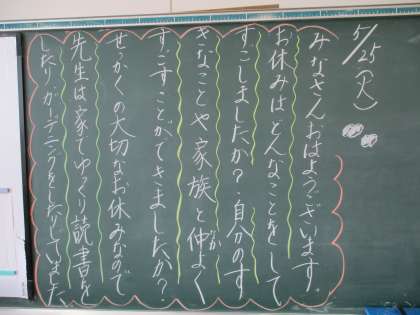 5/25(火)
みなさん、おはようございます。
お休みはどんなことをして
すごしましたか?自分のす
きなことや家族と仲よく
なか
すごすことができましたか?
せっかくの大切なお休みなので
先生は家でゆっくり読書を
したり、ガーデニングをしたりしていました